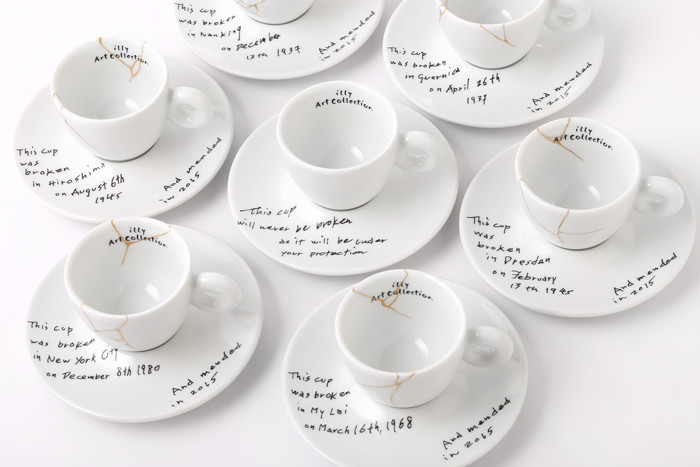 This cup
was broken
in Nanking
on December
13th 1937
And mended
in 2015
This cup
was broken
in Guernica
on April 26th
1937
And mended
in 2015
illy
Art Collection
This cup
was
broken
in Hiroshima
on August 6th
1945
And mended
in 2015
illy
Art Collection
This cup
will never be broken
as it will be under
your protection
illy
Art Collection
This cup
was
broken
in Dresden
on February
13th 1945
And mended
in 2015
illy
Art Collection
This cup
was broken
in New York City
on December 8th 1980
And mended
in 2015
illy
Art Collection
This cup
was broken
in My Lai
on March 16th, 1968
And mended
in 2015